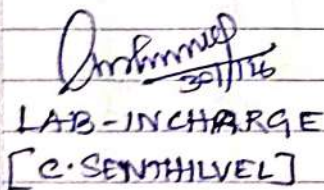 30/1/26
LAB-INCHARGE
[C.SENTHILVEL]